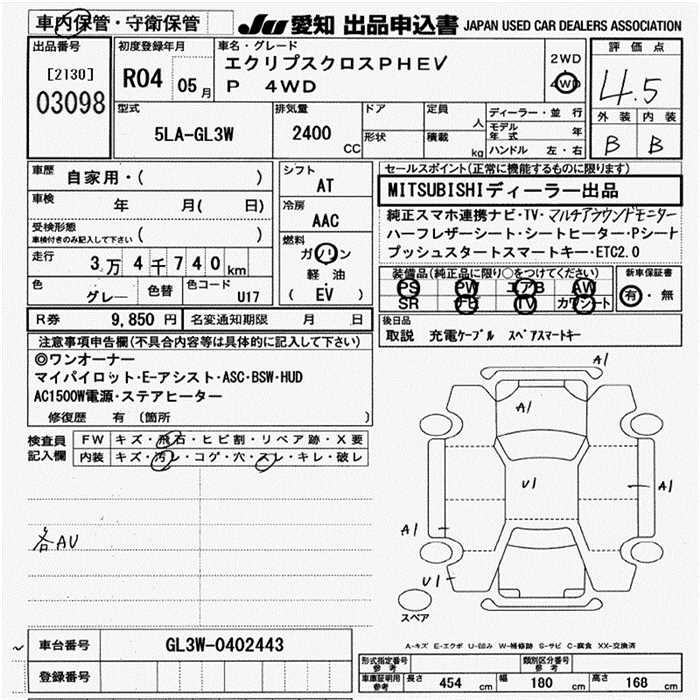 車内保管・守衛保管
JU 愛知 出品申込書 JAPAN USED CAR DEALERS ASSOCIATION
出品番号
[2130]
03098
初度登録年月
R04 05月
車名・グレード
エクリプスクロスPHEV
P 4WD
2WD
4WD
評価点
4.5
外装 内装
B B
型式
5LA-GL3W
排気量
2400
CC
ドア
形状
定員
人
積載
kg
ディーラー・並行
モデル年式 年
ハンドル 左・右
車歴
自家用・( )
車検
年 月( 日)
受検形態
車検付きのみ記入して下さい ( )
走行
3万4千740km
色
グレー
色替
色コード
U17
シフト
AT
冷房
AAC
燃料
ガソリン
軽油
( EV )
セールスポイント(正常に機能するものに限ります)
MITSUBISHIディーラー出品
純正スマホ連携ナビ・TV・マルチアラウンドモニター
ハーフレザーシート・シートヒーター・Pシート
プッシュスタートスマートキー・ETC2.0
装備品(純正品に限り○をつけてください)
PS PW エアB AW
SR TV カワシート
新車保証書
有・無
R券 9,850 円
名変通知期限 月 日
後日品
取説 充電ケーブル スペアスマートキー
注意事項申告欄(不具合内容等は具体的に記入して下さい)
◎ワンオーナー
マイパイロット・E-アシスト・ASC・BSW・HUD
AC1500W電源・ステアヒーター
修復歴 有 (箇所 )
検査員
記入欄
FW キズ・飛石・ヒビ割・リペア跡・X要
内装 キズ・汚レ・コゲ・穴・スレ・キレ・破レ
各AU
A1
A1
U1
A1
A1
U1
スペア
車台番号 GL3W-0402443
登録番号
A-キズ E-エクボ U-凹み W-補修跡 S-サビ C-腐食 XX-交換済
形式指定番号
参考
類別区分番号
参考
車庫証明用
参考
長さ 454 cm 幅 180 cm 高さ 168 cm